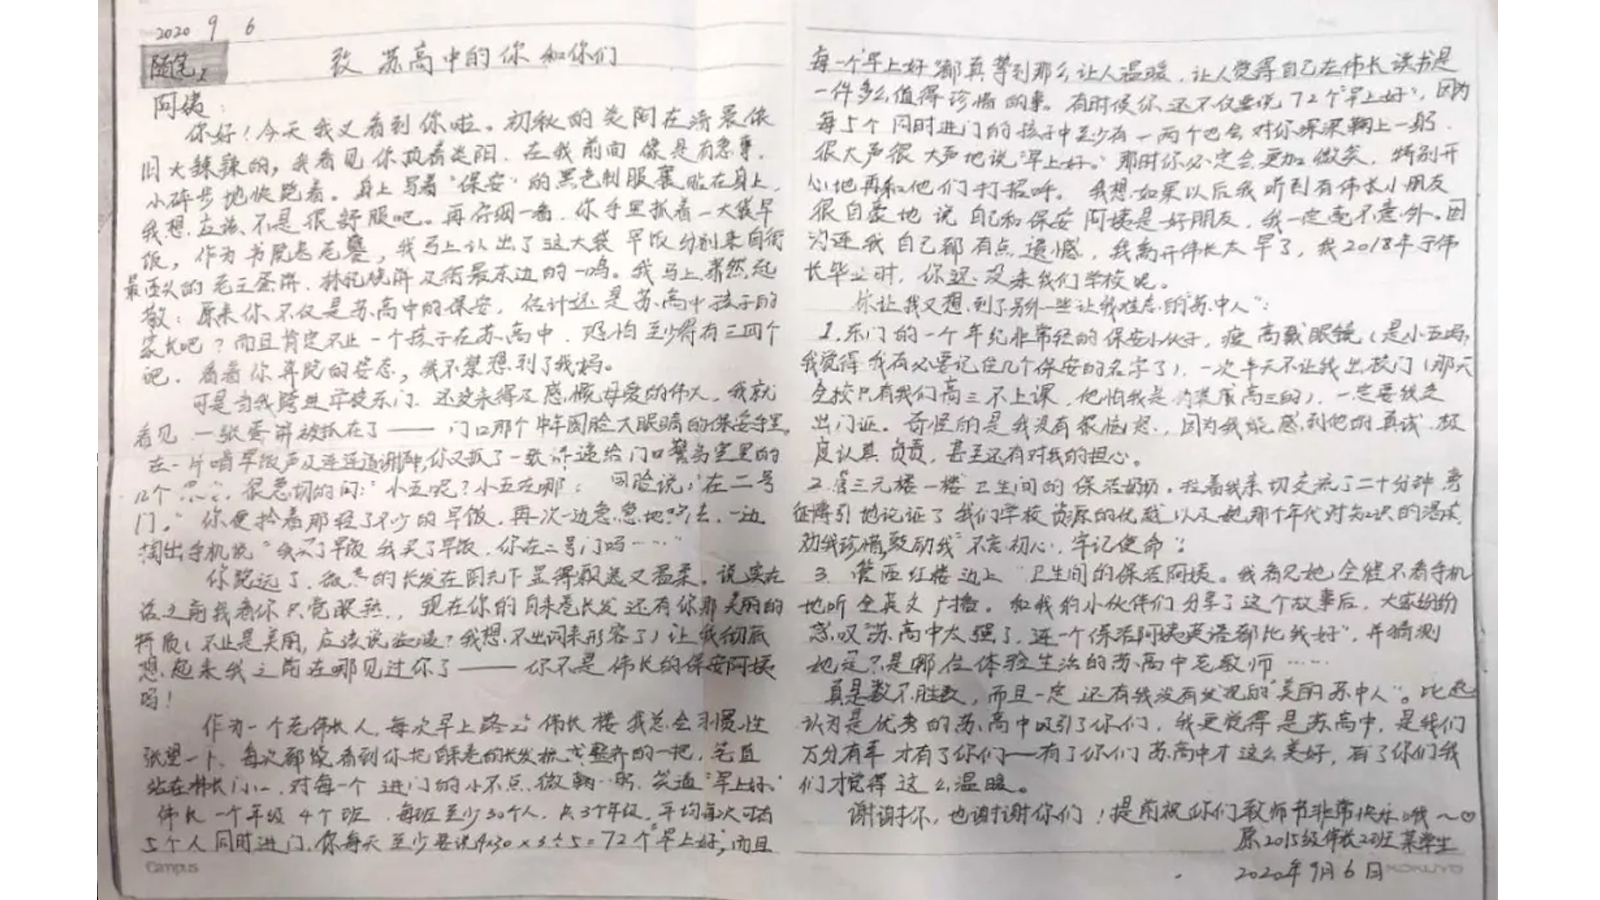 2020 9 6
随笔
致 苏高中的你和你们
阿姨:
你好!今天我又看到你啦。初秋的炎阳在清晨依
旧火辣辣的,我看见你顶着炎阳,在我前面像是有急事,
小碎步地快跑着。身上写着"保安"的黑色制服裹贴在身上,
我想应该不是很舒服吧。再仔细一看,你手里抓着一大袋早
饭,作为书院老饕,我马上认出了这大袋早饭分别来自街
最西头的老王蛋饼、林记烧饼及街最东边的一鸣。我马上肃然起
敬:原来你不仅是苏高中的保安,估计还是苏高中孩子的
家长吧?而且肯定不止一个孩子在苏高中,恐怕至少得有三四个
吧。看着你奔跑的姿态,我不禁想到了我妈。
可是当我跨进学校东门,还没来得及感慨母爱的伟大,我就
看见一张蛋饼被抓在了——门口那个中年圆脸大眼睛的保安手里。
在一片啃早饭声及连连道谢声中,你又抓了一些饼递给门口警务室里的
几个,很急切的问:"小五呢?小五在哪?"圆脸说:"在二号
门。"你便拎着那轻了不少的早饭,再次一边急急地跑去,一边
掏出手机说"我买了早饭我买了早饭,你在二号门吗……"
你跑远了,微卷的长发在阳光下显得飘逸又温柔。说实在
话之前我看你只觉眼熟,现在你的自来卷长发还有你那美丽的
特质(不止是美丽,应该说 ?我想不出词来形容了)让我彻底
想起来我之前在哪见过你了——你不是伟长的保安阿姨
吗!
作为一个老伟长人,每次早上路过伟长楼我总会习惯性
张望一下,每次都能看到你把自来卷的长发梳成整齐的一把,笔直
站在伟长门口,对每一个进门的小不点,微鞠一躬,笑道"早上好"。
伟长一个年级4个班,每班至少30个人,共3个年级,平均每次可有
5个人同时进门,你每天至少要说4×30×3÷5=72个"早上好",而且
每一个"早上好"都真挚到那么让人温暖,让人觉得自己在伟长读书是
一件多么值得珍惜的事。有时候你还不仅要说72个"早上好",因为
每5个同时进门的孩子中至少有一两个也会对你深深鞠上一躬,
很大声很大声地说"早上好"。那时你必定会更加微笑,特别开
心地再和他们打招呼。我想如果以后我听到有伟长小朋友
很自豪地说自己和保安阿姨是好朋友,我一定毫不意外。因
为连我自己都有点遗憾,我离开伟长太早了,我2018年于伟
长毕业时,你还没来我们学校呢。
你让我又想到了另外一些让我难忘的"苏中人":
1.东门的一个年纪非常轻的保安小伙子,瘦高戴眼镜(是小五吗,
我觉得我有必要记住几个保安的名字了),一次半天不让我出校门(那天
全校只有我们高三不上课,他怕我是伪装成高三的),一定要我交
出门证。奇怪的是我没有很恼怒,因为我能感到他的真诚、极
度认真负责,甚至还有对我的担心。
2.管三元楼一楼卫生间的保洁奶奶,拉着我亲切交流了二十分钟,旁
征博引地论证了我们学校资源的优越以及她那个年代对知识的渴求,
劝我珍惜,鼓励我"不忘初心,牢记使命"。
3.管西红楼边上卫生间的保洁阿姨。我看见她全程不看手机
地听全英文广播。和我的小伙伴们分享了这个故事后,大家纷纷
感叹"苏高中太强了,连一个保洁阿姨英语都比我好",并猜测
她是不是哪位体验生活的苏高中老教师……
真是数不胜数,而且一定还有我没有发现的"美丽苏中人"。比起
认为是优秀的苏高中吸引了你们,我更觉得是苏高中,是我们
万分有幸才有了你们——有了你们苏高中才这么美好,有了你们我
们才觉得这么温暖。
谢谢你,也谢谢你们!提前祝你们教师节非常快乐哦~♡
原2015级伟长2班某学生
2020年9月6日
Campus
KOKUYO